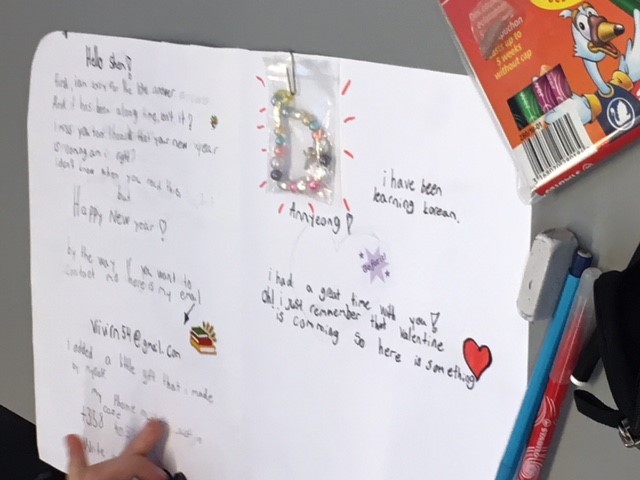 Hello Shen!
first, i am for the late answer
And it has been a long time, isn't it?
i miss you too! i heard that your new year
is coming am i right?
i don't know when you read this
but
Happy New year!
by the way if you want to
contact me here is my email
vivirn54@gmail.com
I added a little gift that i made
by myself
my Phone
code
+358
Write
Annyeong!
i have been
learning korean.
i had a great time with you!
Oh! i just remember that valentine
is comming so here is something
up to
5 weeks
without cap